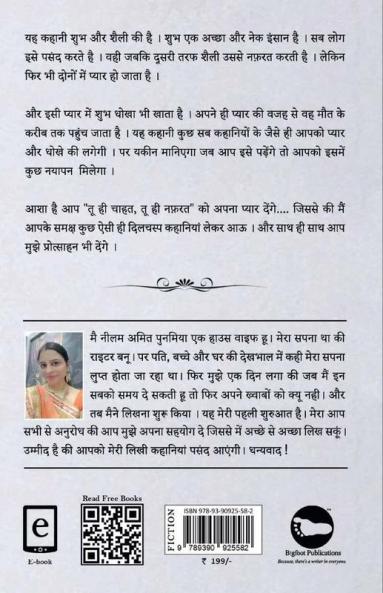 यह कहानी शुभ और शैली की है । शुभ एक अच्छा और नेक इंसान है । सब लोग
इसे पसंद करते है । वही जबकि दुसरी तरफ शैली उससे नफ़रत करती है । लेकिन
फिर भी दोनों में प्यार हो जाता है ।
और इसी प्यार में शुभ धोखा भी खाता है । अपने ही प्यार की वजह से वह मौत के
करीब तक पहुंच जाता है । यह कहानी कुछ सब कहानियों के जैसे ही आपको प्यार
और धोखे की लगेगी । पर यकीन मानिएगा जब आप इसे पढ़ेंगे तो आपको इसमें
कुछ नयापन मिलेगा ।
आशा है आप "तू ही चाहत, तू ही नफ़रत" को अपना प्यार देंगे.... जिससे की मैं
आपके समक्ष कुछ ऐसी ही दिलचस्प कहानियां लेकर आऊ । और साथ ही साथ आप
मुझे प्रोत्साहन भी देंगे ।
मै नीलम अमित पुनमिया एक हाउस वाइफ हू। मेरा सपना था की
राइटर बनू। पर पति, बच्चे और घर की देखभाल में कही मेरा सपना
लुप्त होता जा रहा था। फिर मुझे एक दिन लगा की जब मैं इन
सबको समय दे सकती हू तो फिर अपने ख्वाबों को क्यू नही। और
तब मैने लिखना शुरू किया । यह मेरी पहली शुरुआत है। मेरा आप
सभी से अनुरोध की आप मुझे अपना सहयोग दे जिससे में अच्छे से अच्छा लिख सकूं।
उम्मीद है की आपको मेरी लिखी कहानियां पसंद आएंगी। धन्यवाद !
e
E-book
Read Free Books
FICTION
ISBN 978-93-90925-58-2
9 789390 925582
₹ 199/-
Bigfoot Publications
Because, there's a writer in everyone.